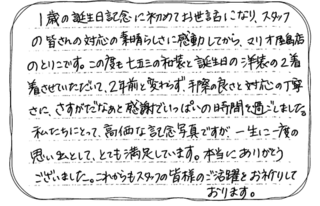 1歳の誕生日記念に初めてお世話になり、スタッフ
の皆さんの対応の素晴らしさに感動してから、マリオ屋島店
のとりこです。この度も七五三の和装と誕生日の洋装の2着
着させていただいて、2年前と変わらず、手際の良さと対応の丁寧
さに、さすがだなぁと感謝でいっぱいの時間を過ごしました。
私たちにとって、高価な記念写真ですが、一生に一度の
思い出として、とても満足しています。本当にありがとう
ございました。これからもスタッフの皆様のご活躍をお祈りして
おります。